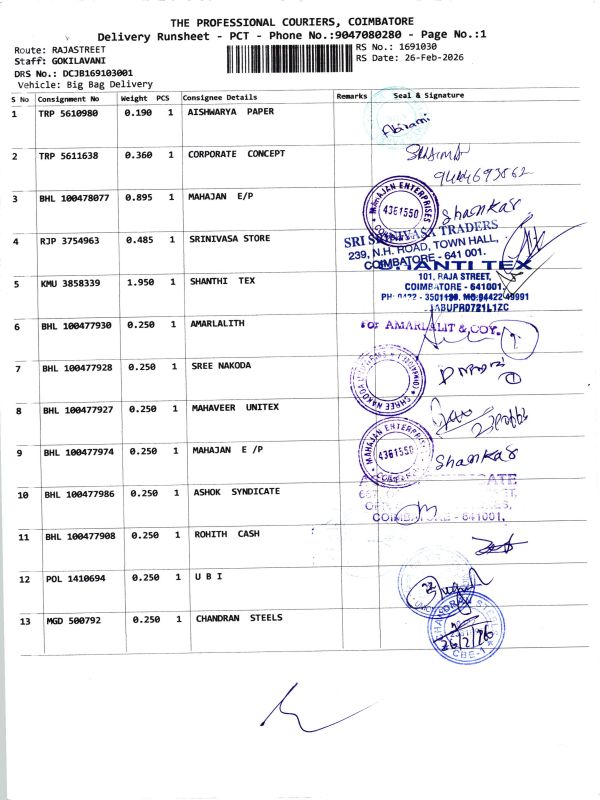 THE PROFESSIONAL COURIERS, COIMBATORE
Delivery Runsheet - PCT - Phone No.:9047080280 - Page No.:1
Route: RAJASTREET
RS No.: 1691030
Staff: GOKILAVANI
RS Date: 26-Feb-2026
DRS No.: DCJB169103001
Vehicle: Big Bag Delivery
S No Consignment No Weight PCS Consignee Details Remarks Seal & Signature
1 TRP 5610980 0.190 1 AISHWARYA PAPER Abirami
2 TRP 5611638 0.360 1 CORPORATE CONCEPT
3 BHL 100478077 0.895 1 MAHAJAN E/P MAHAJAN ENTERPRISES 4361550 Shankar
4 RJP 3754963 0.485 1 SRINIVASA STORE
SRI SRINIVASA TRADERS
239, N.H. ROAD, TOWN HALL,
COIMBATORE - 641 001.
5 KMU 3858339 1.950 1 SHANTHI TEX
SHANTI TEX
101, RAJA STREET,
COIMBATORE - 641001
6 BHL 100477930 0.250 1 AMARLALITH
For AMARLALIT & COY.
7 BHL 100477928 0.250 1 SREE NAKODA SHREE NAKODA
8 BHL 100477927 0.250 1 MAHAVEER UNITEX
9 BHL 100477974 0.250 1 MAHAJAN E /P MAHAJAN ENTERPRISES 4361550 Shankar
10 BHL 100477986 0.250 1 ASHOK SYNDICATE
COIMBATORE - 641001.
11 BHL 100477908 0.250 1 ROHITH CASH
12 POL 1410694 0.250 1 U B I
13 MGD 500792 0.250 1 CHANDRAN STEELS
CHANDRAN STEELS
26/2/26
CBE-1